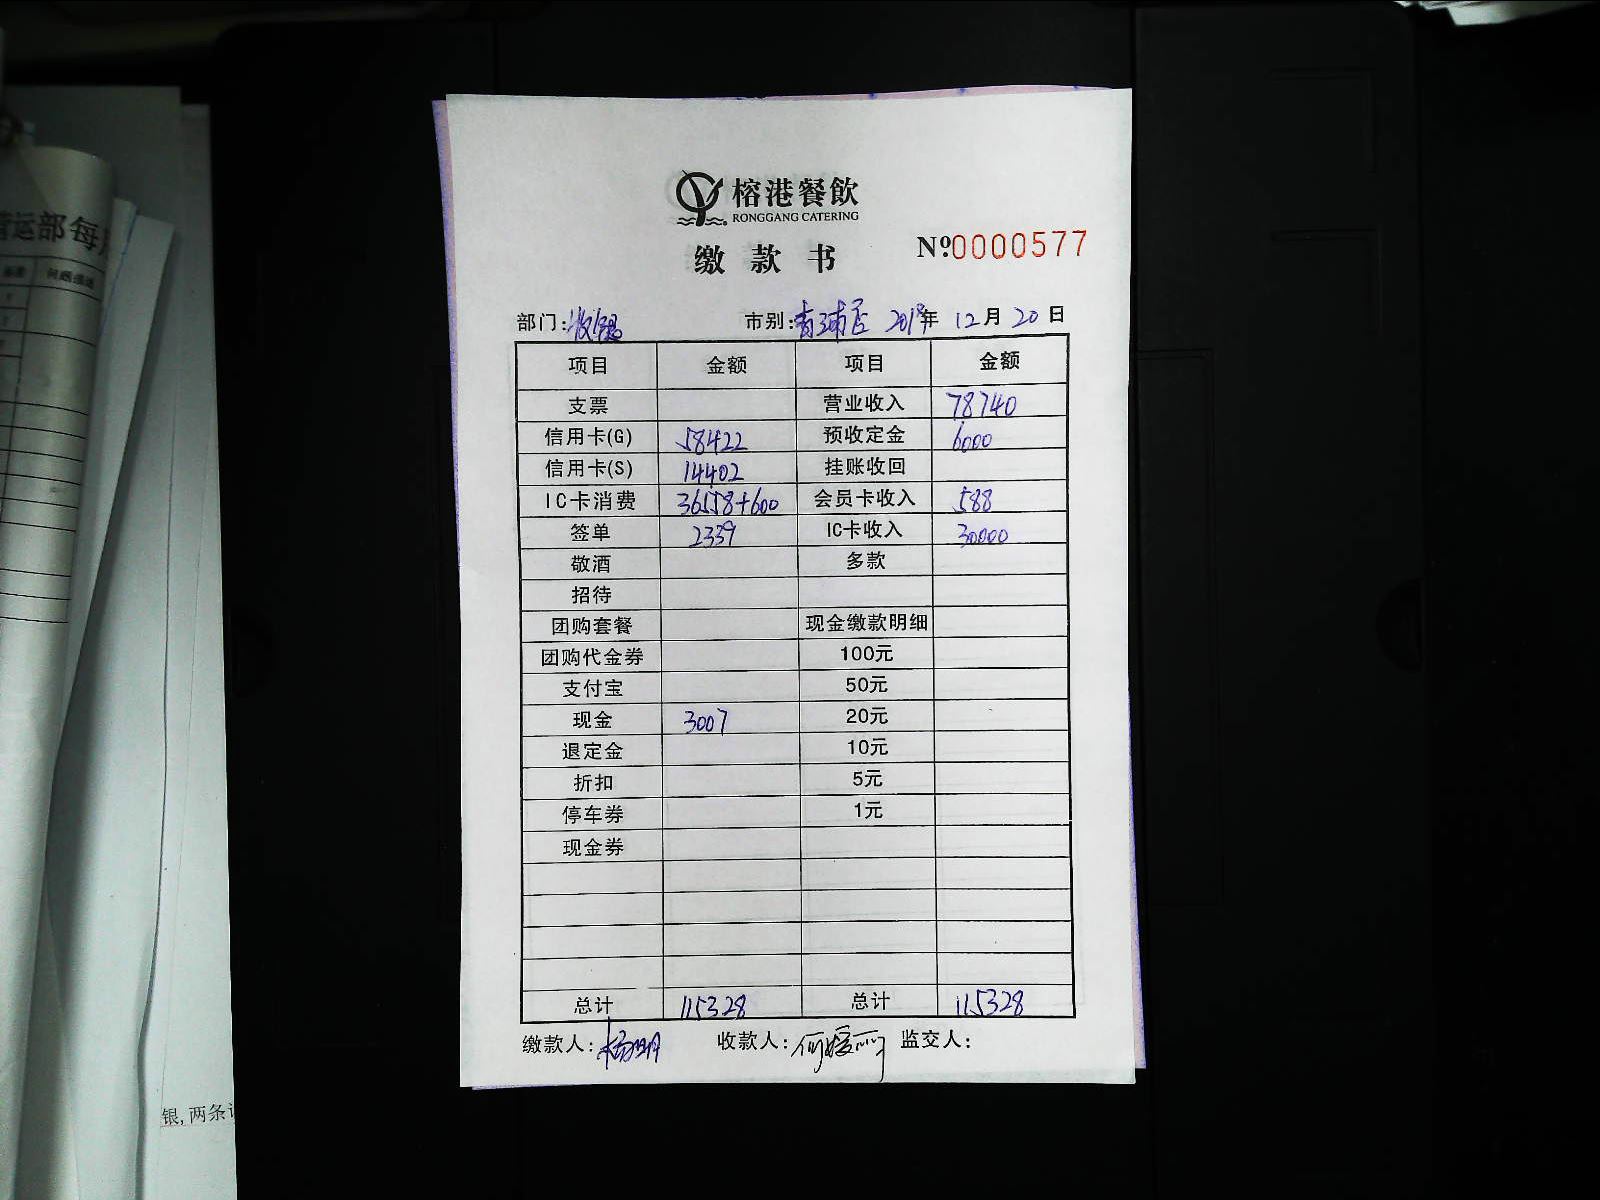 榕港餐飲
RONGGANG CATERING
缴款书
№0000577
部门:收银 市别:青浦店 年 12月20日
项目 金额 项目 金额
支票 营业收入 78740
信用卡(G) 58422 预收定金 6000
信用卡(S) 14402 挂账收回
IC卡消费 36558+600 会员卡收入 588
签单 2339 IC卡收入 30000
敬酒 多款
招待
团购套餐 现金缴款明细
团购代金券 100元
支付宝 50元
现金 3007 20元
退定金 10元
折扣 5元
停车券 1元
现金券
总计 115328 总计 115328
缴款人: 收款人: 监交人:
营运部每
银,两条